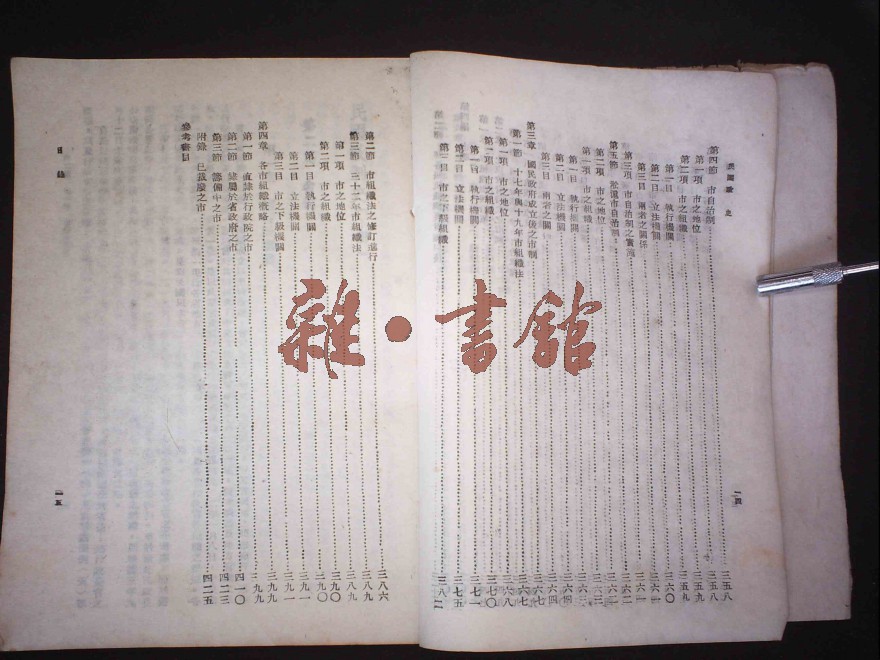 民國政史
第四節 市自治制……三五八
第一項 市之地位……三五八
第二項 市之組織……三五九
第一目 執行機關……三五九
第二目 立法機關……三六〇
第三目 兩者之關係……三六一
第三項 市自治制之實施……三六二
第五節 淞滬市自治制……三六二
第一項 市之地位
第二項 市之組織
第一目 執行機關……三六四
第二目 立法機關……三六四
第三目 兩者之關係……三六七
第三章 國民政府成立後之市制……三六七
第一節 十七年與十九年市組織法……三六八
第一項 市之地位……三七〇
第二項 市之組織……三七一
第一目 執行機關……三七一
第二目 立法機關……三七五
第三目 市之下級組織……三八二
一四
第二節 市組織法之修訂進行……三八六
第三節 三十二年市組織法……三八九
第一項 市之地位……三八九
第二項 市之組織……三九〇
第一目 執行機關……三九〇
第二目 立法機關……三九一
第三目 市之下級機關……三九一
第四章 各市組織概略……三九九
第一節 直隸於行政院之市……三九九
第二節 隸屬於省政府之市……四一〇
第三節 籌備中之市……四二三
附錄 已裁廢之市……四二五
參考書目
目錄
一五
雜·書館